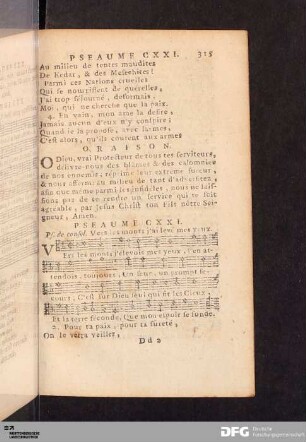 PSEAUME CXXI. 315
Au milieu de tentes maudites
De Kedar, & des Mesechites!
Parmi ces Nations cruelles
Qui se nourrissent de querelles,
J'ai trop séjourné, desormais,
Moi, qui ne cherche que la paix.
4. En vain, mon ame la desire,
Jamais aucun d'eux n'y conspire:
Quand je la propose, avec larmes,
C'est alors, qu'ils courent aux armes
ORAISON.
O Dieu, vrai Protecteur de tous tes serviteurs,
délivre-nous des blâmes & des calomnies
de nos ennemis, réprime leur extreme fureur,
& nous affermi au milieu de tant d'adversitez,
afin que même parmi les infidéles, nous ne laissions
pas de te rendre un service qui te soit
agréable, par Jesus Christ ton Fils nôtre Seigneur,
Amen.
PSEAUME CXXI.
Ps. de consol. Vers les monts j'ai levé mes yeux
Vers les monts j'élevois mes yeux, en attendois,
toujours, Un seur, un prompt secours,
C'est sur Dieu seul qui fit les Cieux,
Et la terre féconde, Que mon espoir se fonde.
2. Pour ta paix, pour ta sureté,
On le verra veiller,
Dd 2
DFG Deutsche
Forschungsgemeinschaft